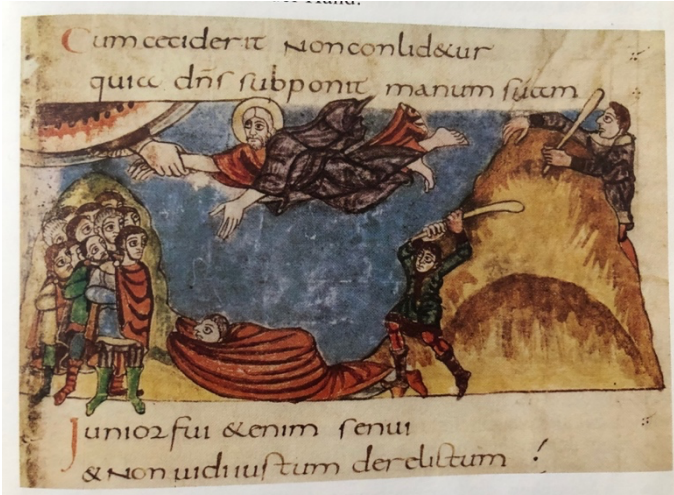 Cum ceciderit non conlid&ur
quia dn̄s subponit manum suam
Iunior fui &enim senui
& non uidi iustum derelictum